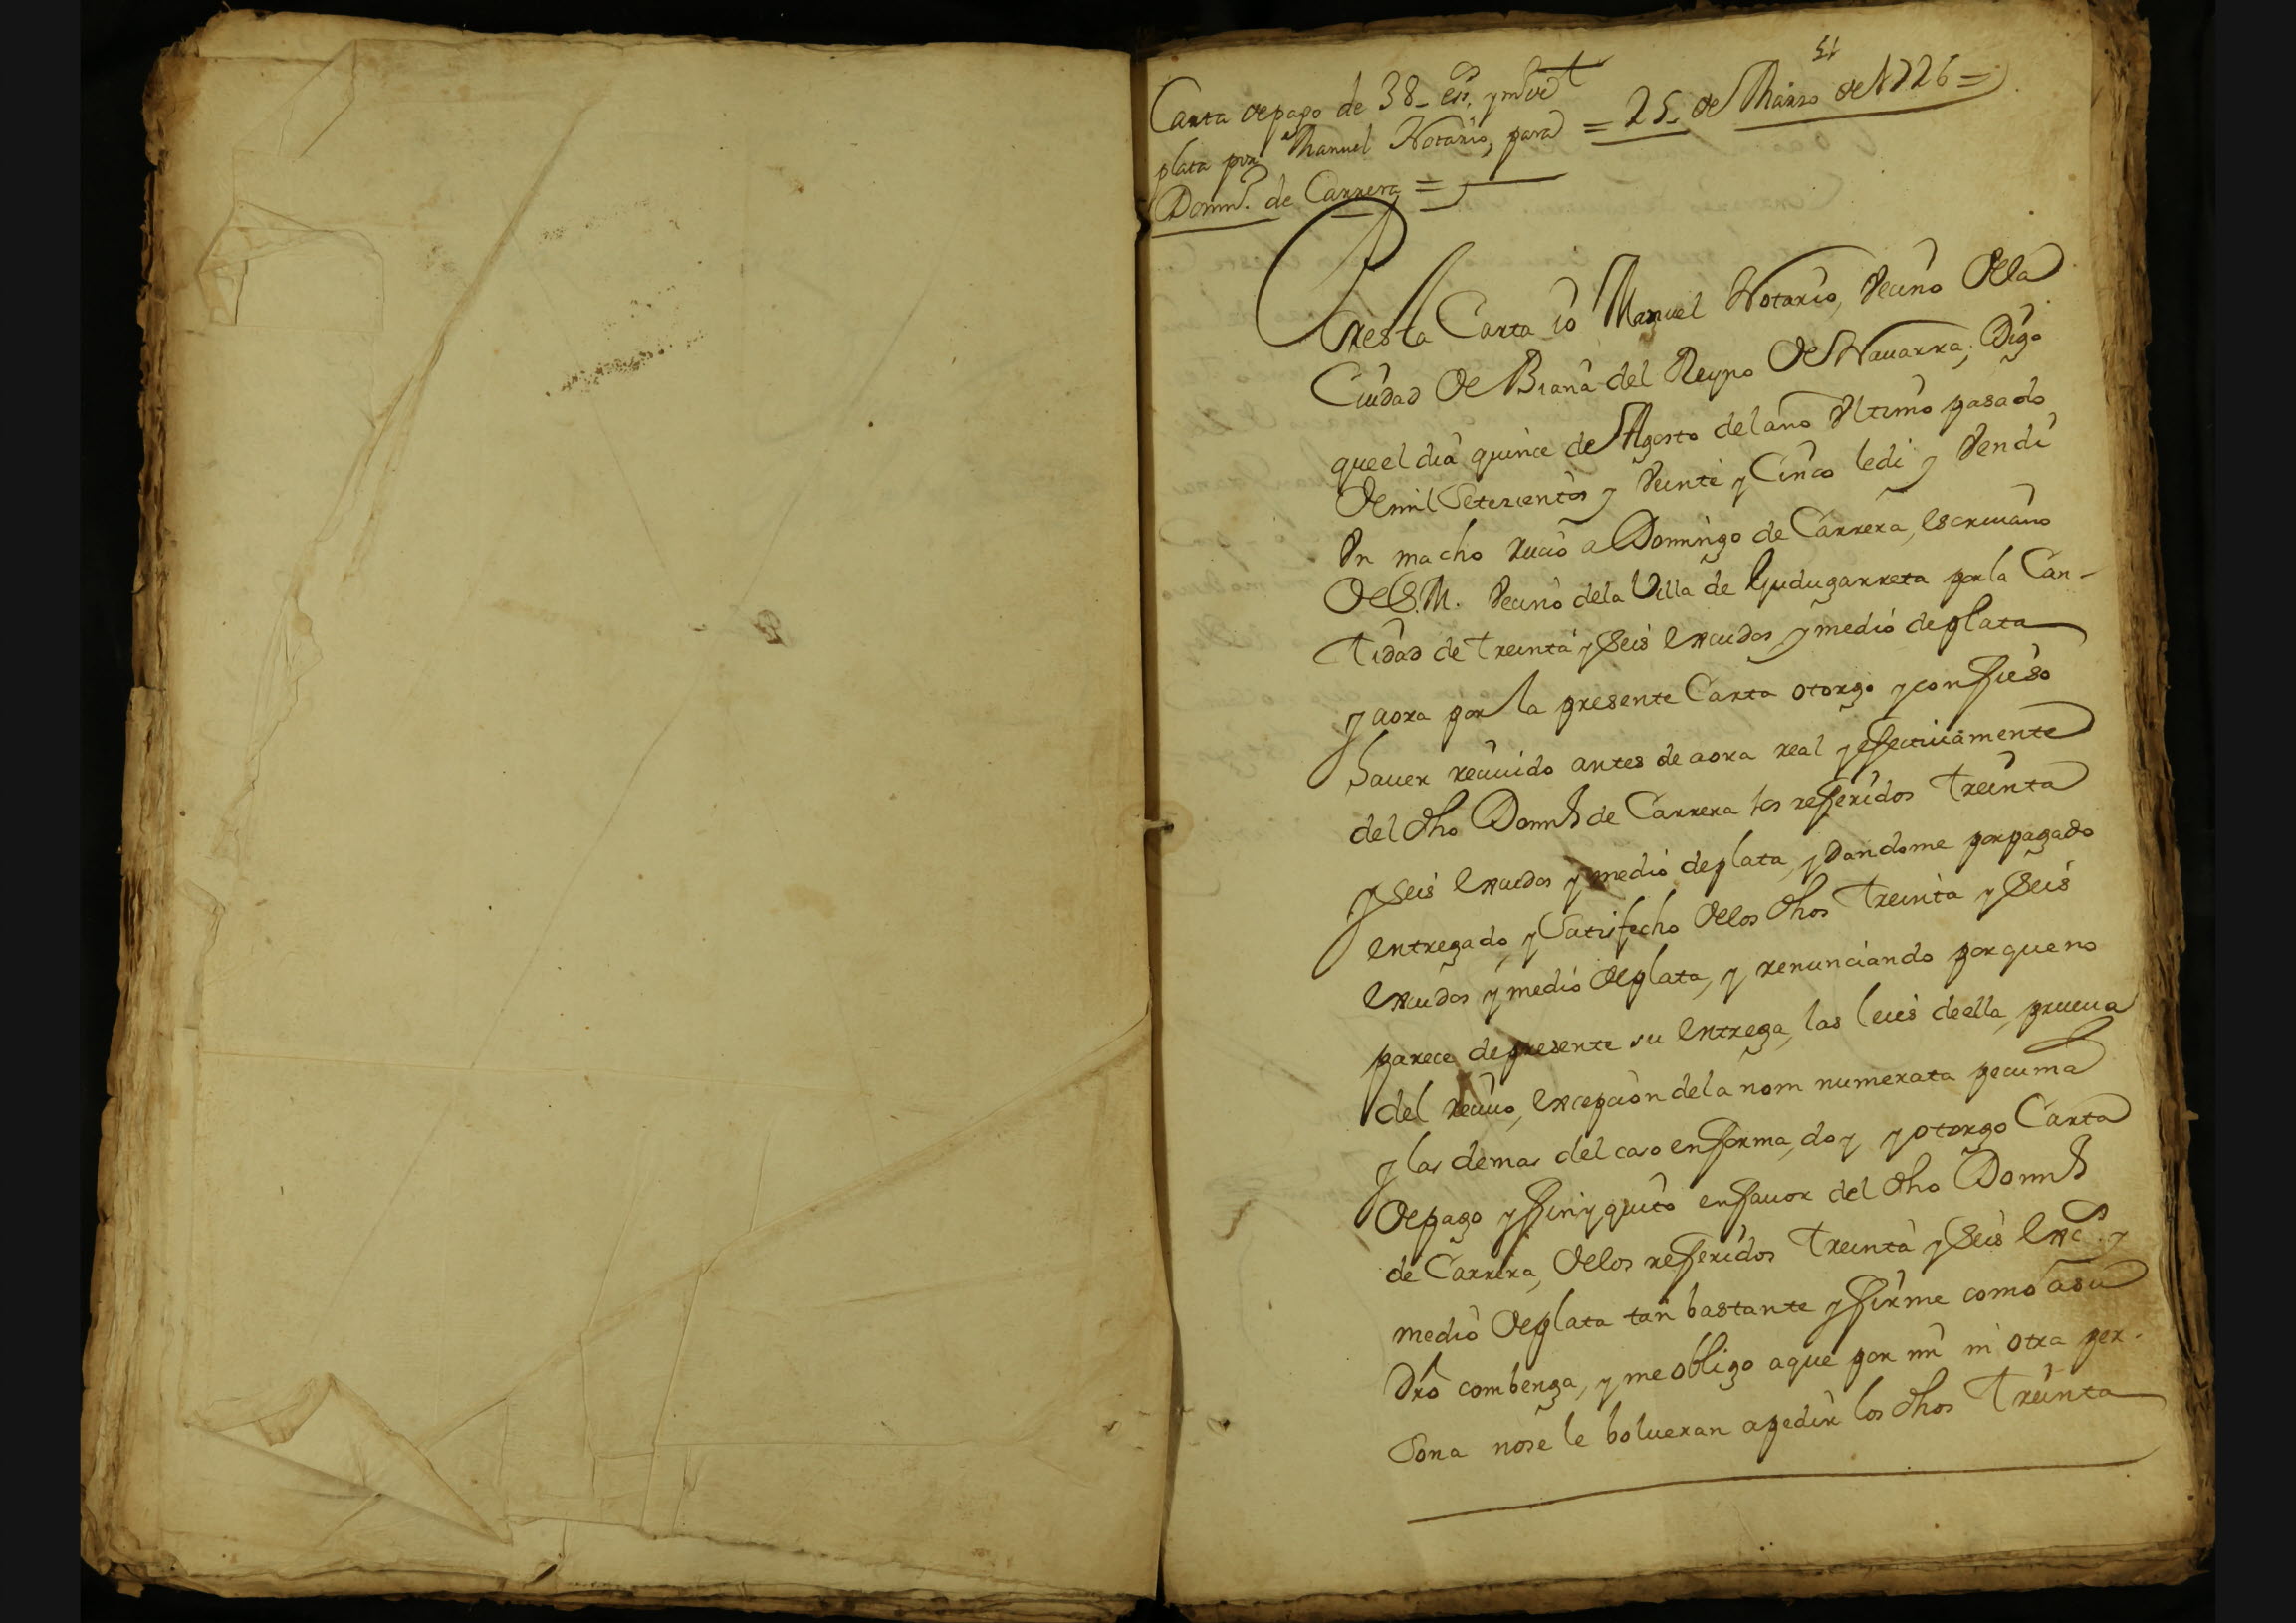 51
Carta de pago de 38_ es.s y m.o de
plata por Manuel Notario, para = 25_ de Marzo de 1726 =
Domin.o de Carrera =
Por esta Carta io Manuel Notario, Vecino de la
Ciudad de Biana del Reyno de Nauarra; Digo
que el dia quince de Agosto del año Vltimo pasado
de mil Setecientos y Veinte y Cinco le di y Vendi
Vn macho Rucio a Domingo de Carrera, escriuano
de S.M. Vecino de la Villa de Gudugarreta por la Can-
tidad de treinta y Seis escudos y medio de plata
y aora por la presente Carta otorgo y confieso
hauer reciuido antes de aora real y efectiuamente
del dho Domin.o de Carrera los referidos treinta
y Seis escudos y medio de plata, y dandome por pagado
entregado, y Satisfecho de los dhos treinta y Seis
escudos y medio de plata, y renunciando por que no
parece de presente su entrega, las leies de ella, prueua
del reciuo, excepcion de la nom numerata pecunia
y las demas del caso en forma, doy y otorgo Carta
de pago y finiquito en fauor del dho Domin.o
de Carrera, de los referidos treinta y Seis esc.s y
medio de plata tan bastante y firme como a su
dro combenga, y me obligo a que por mi ni otra per-
sona no se le bolueran a pedir los dhos treinta